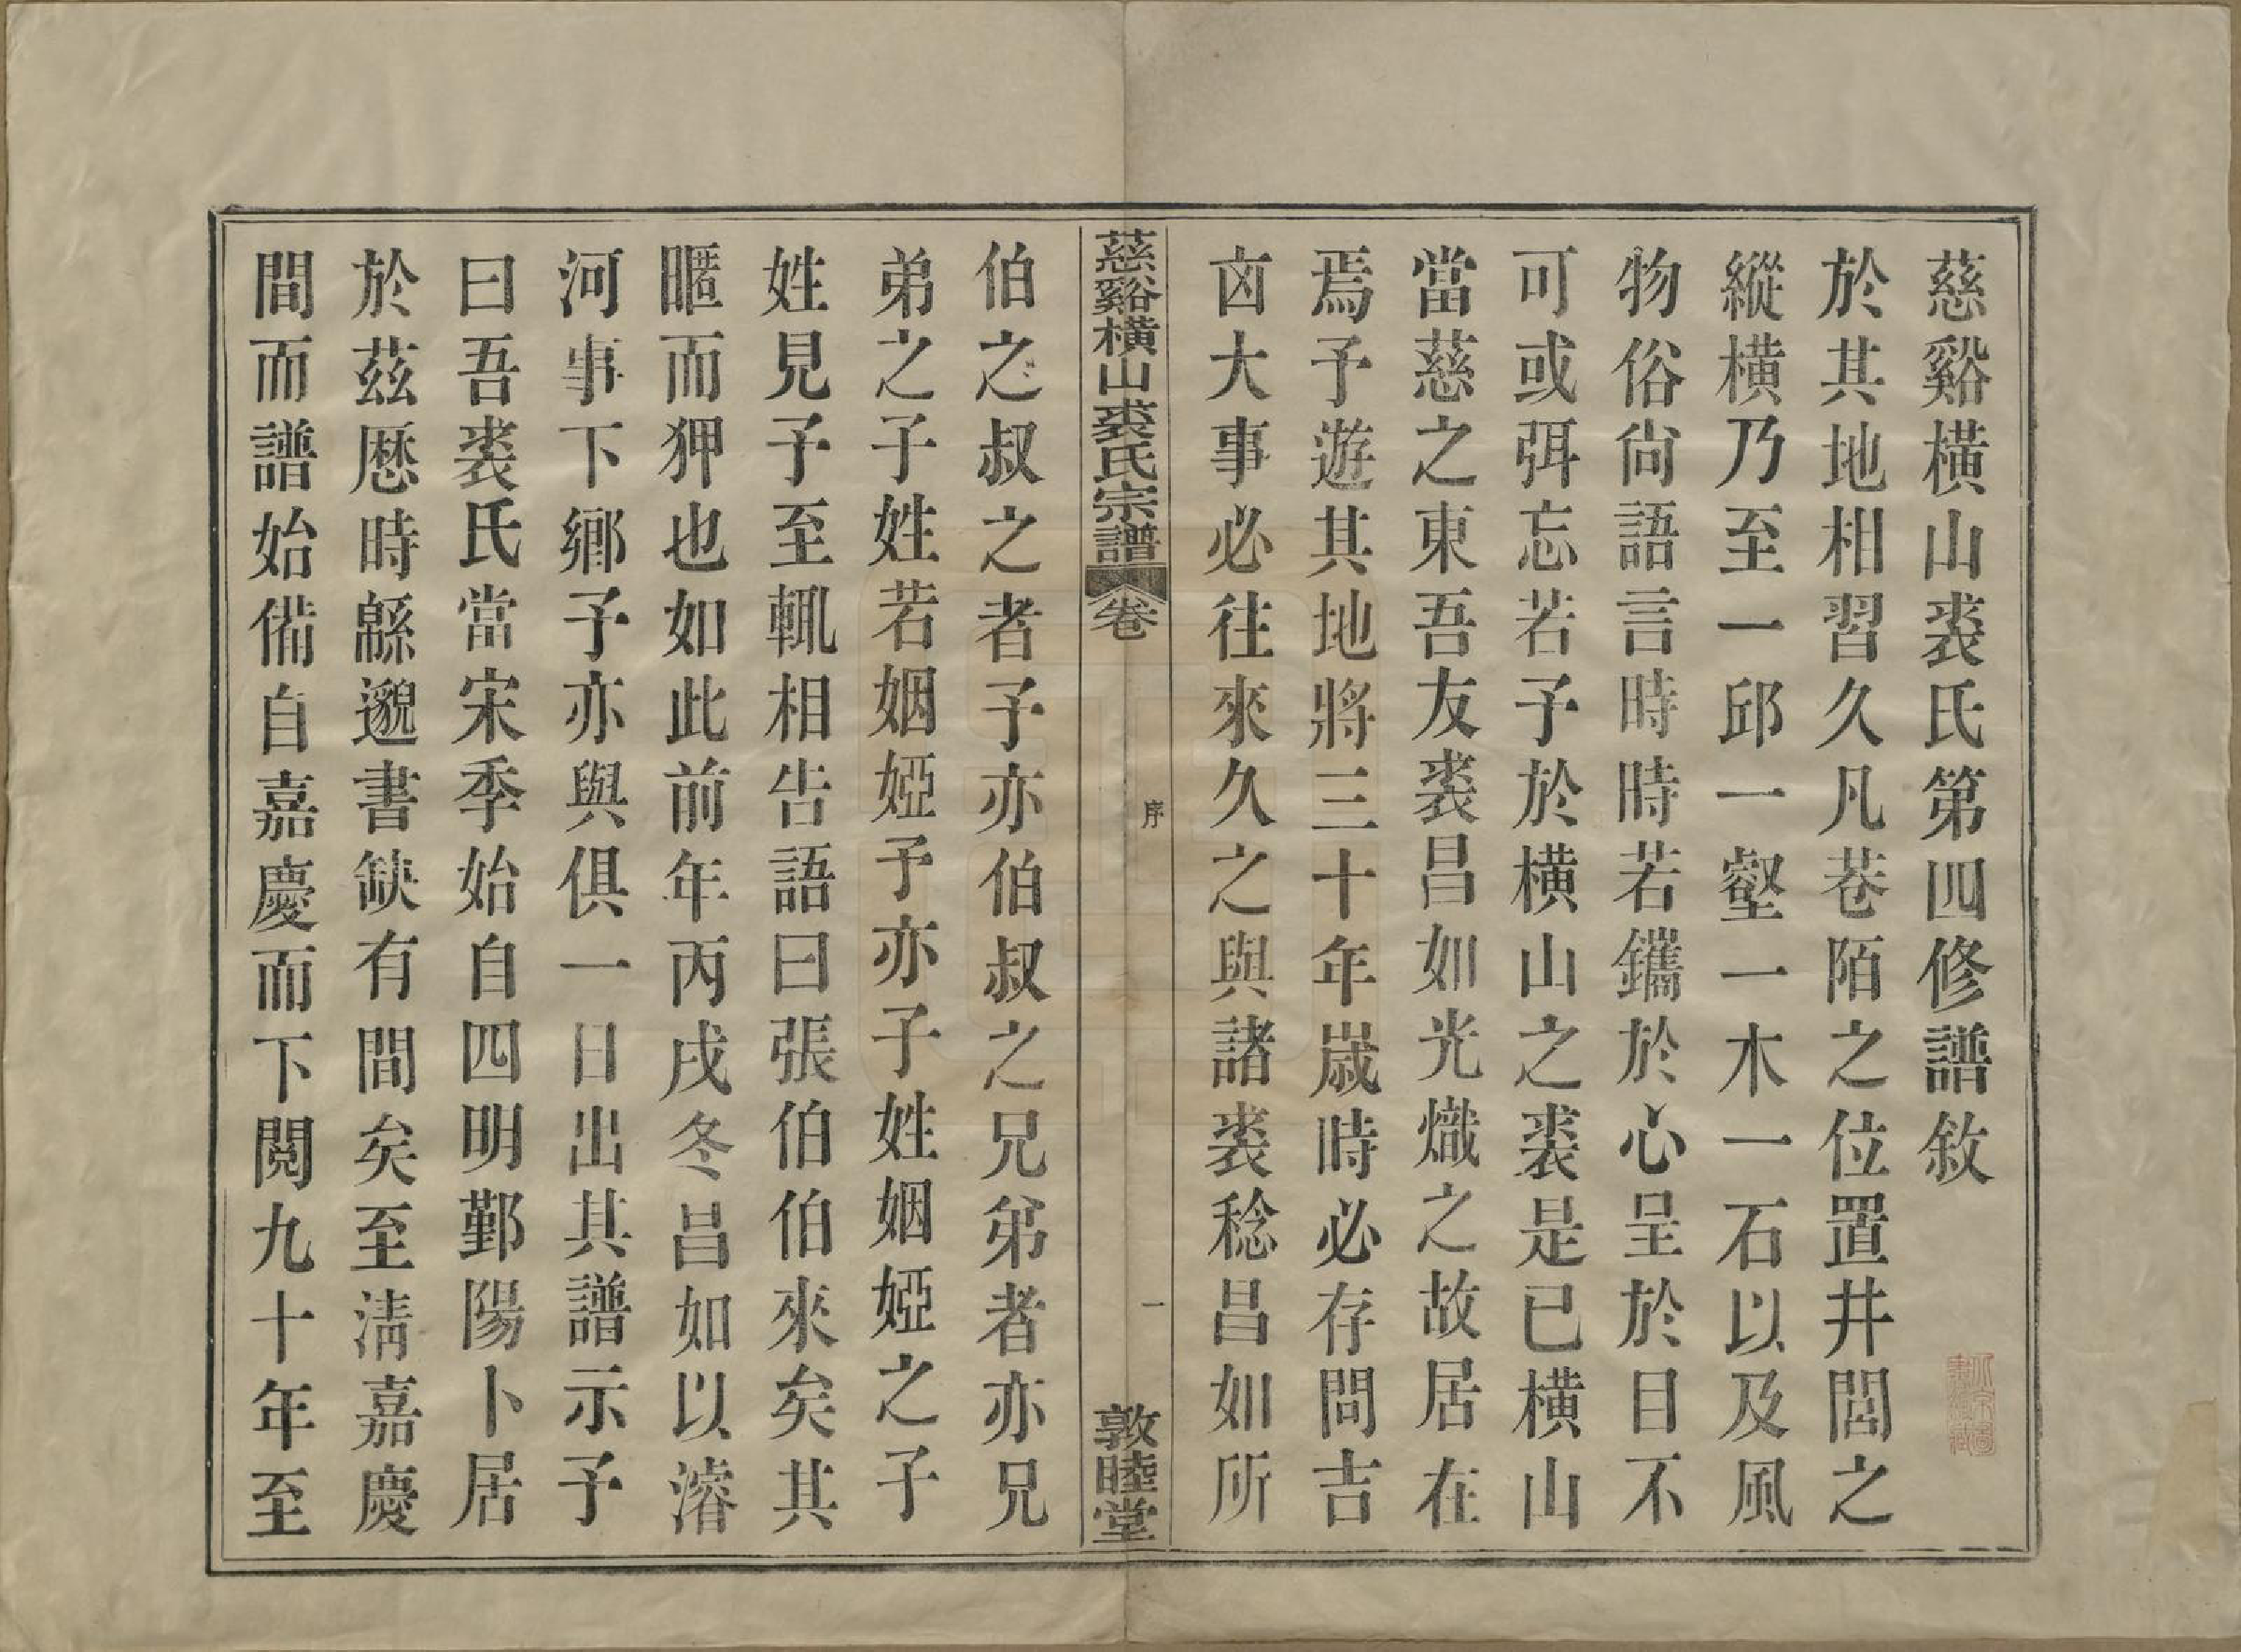 慈谿橫山裘氏第四修譜敘
於其地相習久凡巷陌之位置井閭之
縱橫乃至一邱一壑一木一石以及風
物俗尙語言時時若鐫於心呈於目不
可或弭忘若予於橫山之裘是已橫山
當慈之東吾友裘昌如光熾之故居在
焉予遊其地將三十年嵗時必存問吉
凶大事必往來久之與諸裘稔昌如所
慈谿橫山裘氏宗譜 卷 序 一 敦睦堂
伯之叔之者予亦伯叔之兄弟者亦兄
弟之子姓若姻婭予亦子姓姻婭之子
姓見予至輒相告語曰張伯伯來矣其
暱而狎也如此前年丙戌冬昌如以濬
河事下鄉予亦與俱一日出其譜示予
曰吾裘氏當宋季始自四明鄞陽卜居
於茲厯時緜邈書缺有間矣至淸嘉慶
間而譜始備自嘉慶而下閱九十年至